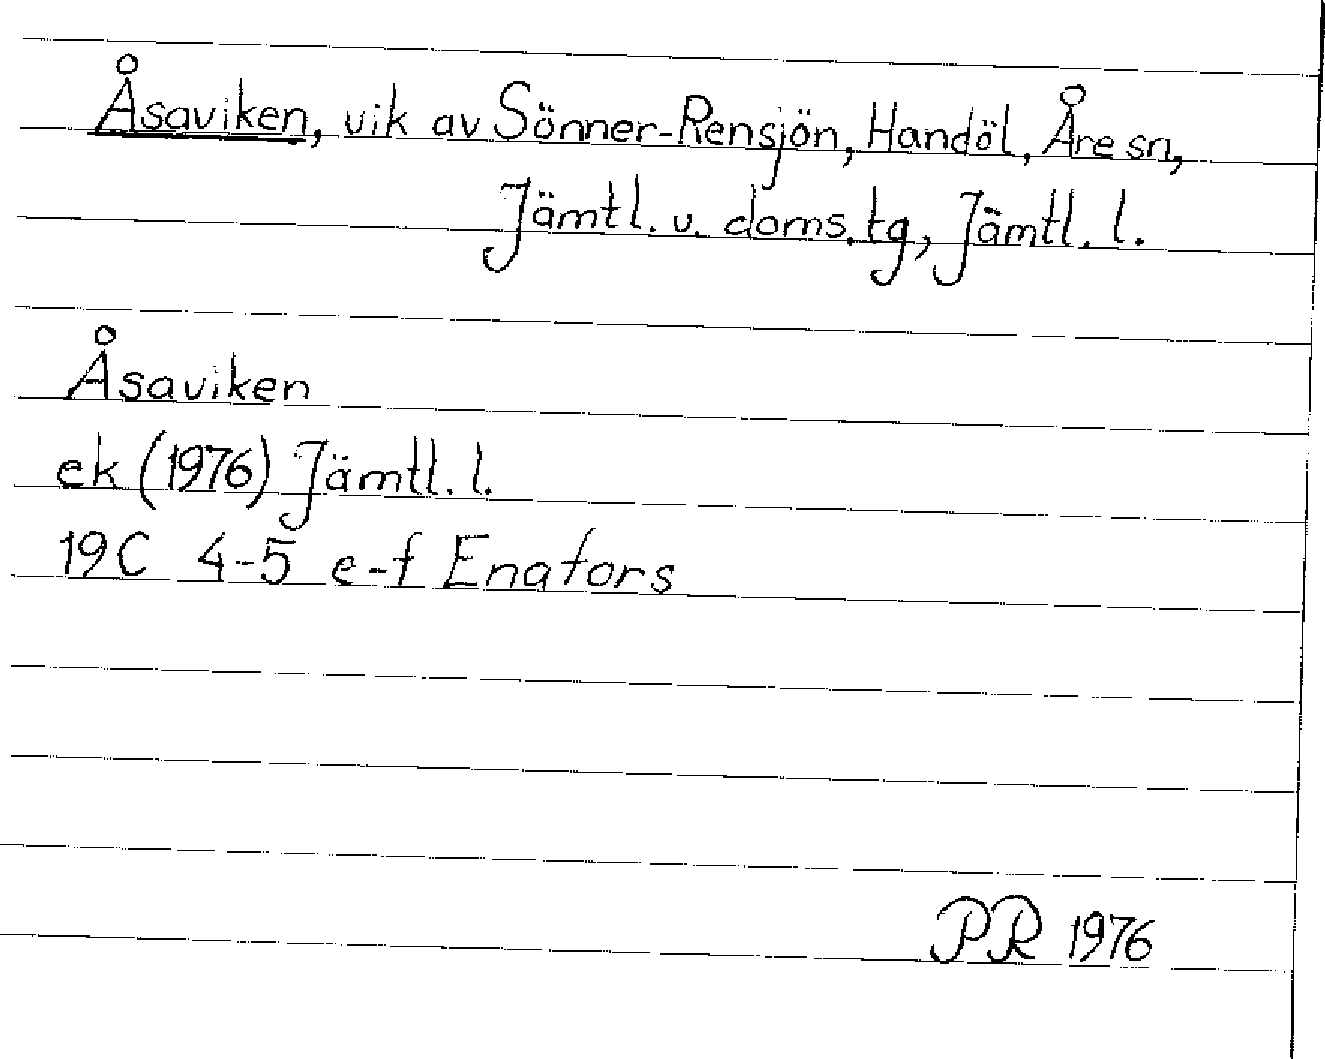 Åsaviken, vik av Sönner-Rensjön, Handöl, Åre sn,
Jämtl. v. doms. tg, Jämtl. l.
Åsaviken
ek (1976) Jämtl. l.
19C 4-5 e-f Enafors
PR 1976